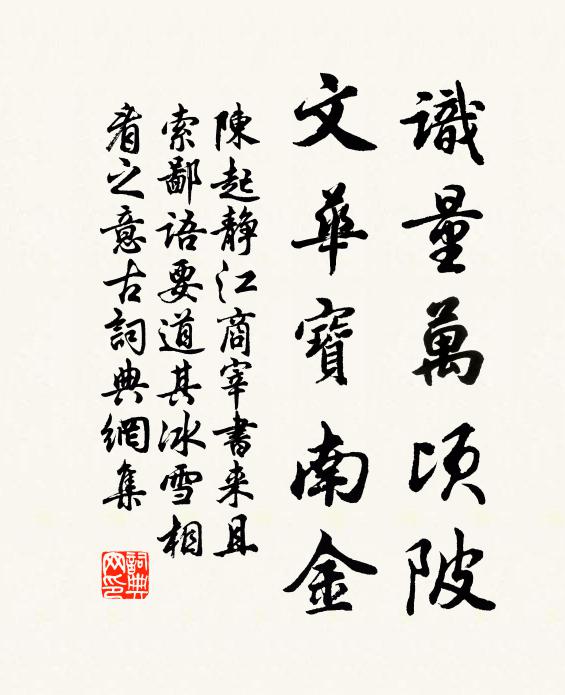 識量萬頃陂
文華寶南金
陳起靜江商宰書来且
索鄙语要道其冰雪相
看之意古詞典網集
詞典
网印